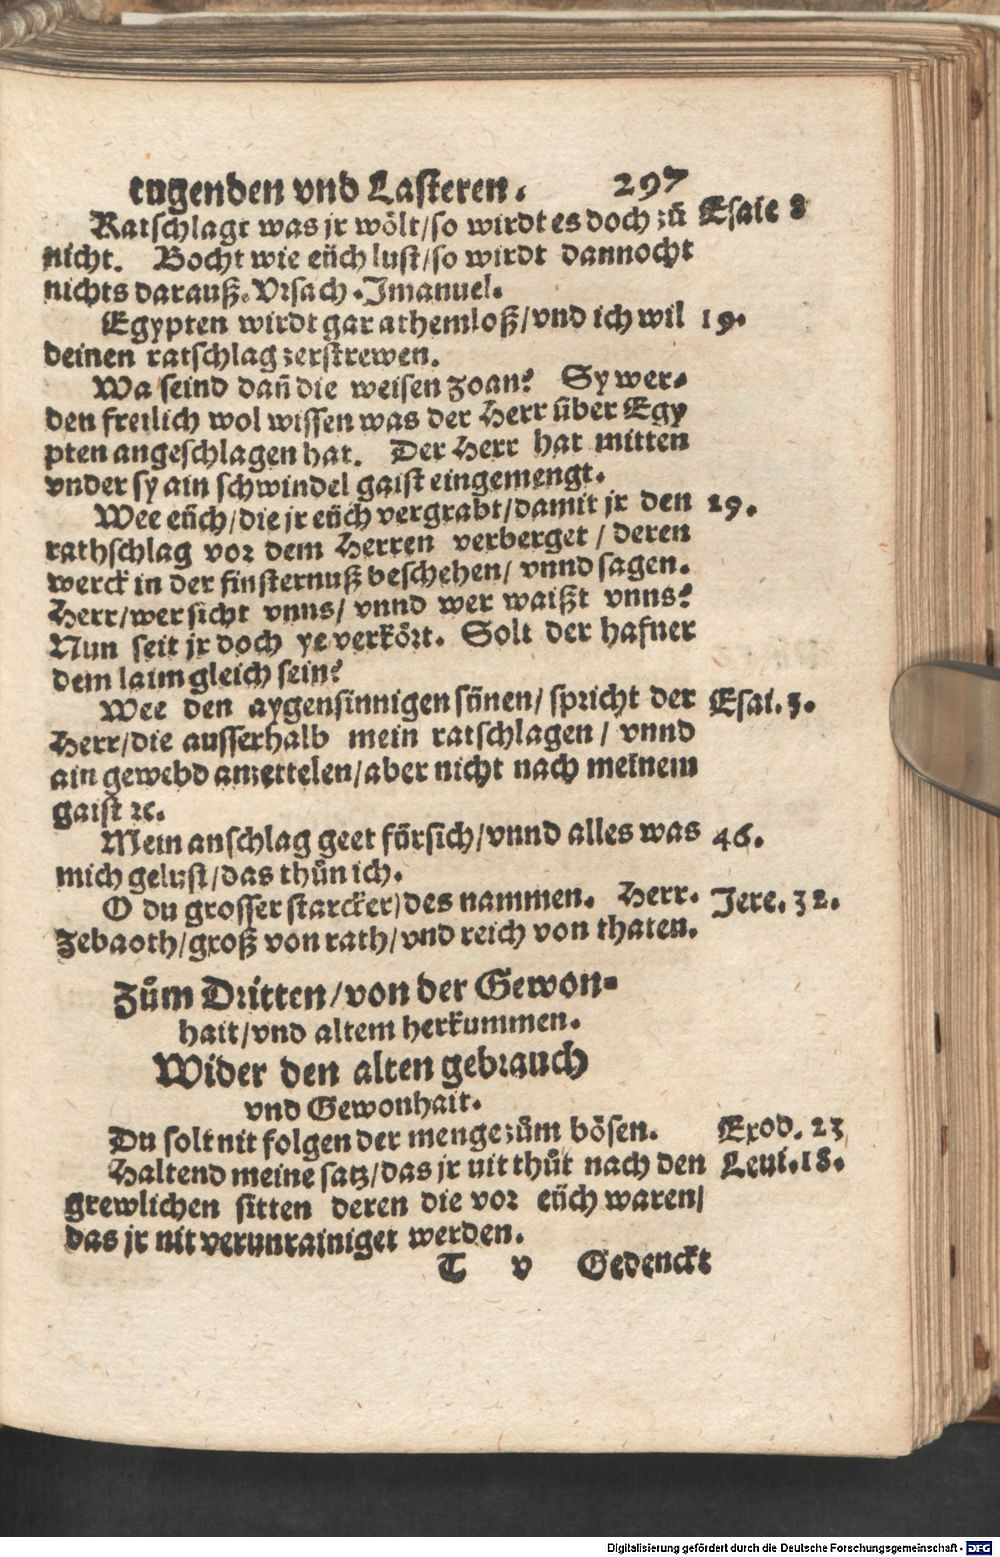 tugenden vnd Lasteren. 297
Ratschlagt was jr wölt/so wirdt es doch zů Esaie 8
nicht. Bocht wie eüch lust/so wirdt dannocht
nichts darauß. Vrsach. Imanuel.
Egypten wirdt gar athemloß/vnd ich wil 19.
deinen ratschlag zerstrewen.
Wa seind dañ die weisen Zoan? Sy wer-
den freilich wol wissen was der Herr über Egy
pten angeschlagen hat. Der Herr hat mitten
vnder sy ain schwindel gaist eingemengt.
Wee eüch/die jr eüch vergrabt/damit jr den 29.
rathschlag vor dem Herren verberget/deren
werck in der finsternuß beschehen/vnnd sagen.
Herr/wer sicht vnns/vnnd wer waißt vnns?
Nun seit jr doch ye verkört. Solt der hafner
dem laim gleich sein?
Wee den aygensinnigen sünen/spricht der Esai.3.
Herr/die ausserhalb mein ratschlagen/vnnd
ain gewebd anzettelen/aber nicht nach meinem
gaist ꝛc.
Mein anschlag geet fürsich/vnnd alles was 46.
mich gelust/das thůn ich.
O du grosser starcker)des nammen. Herr. Jere.32.
Zebaoth/groß von rath/vnd reich von thaten.
Zům Dritten/von der Gewon-
hait/vnd altem herkummen.
Wider den alten gebrauch
vnd Gewonhait.
Du solt nit folgen der menge zům bösen. Exod. 23
Haltend meine satz/das jr nit thůt nach den Leui.18.
grewlichen sitten deren die vor eüch waren/
das jr nit verunrainiget werden.
T v Gedenckt
Digitalisierung gefördert durch die Deutsche Forschungsgemeinschaft - DFG